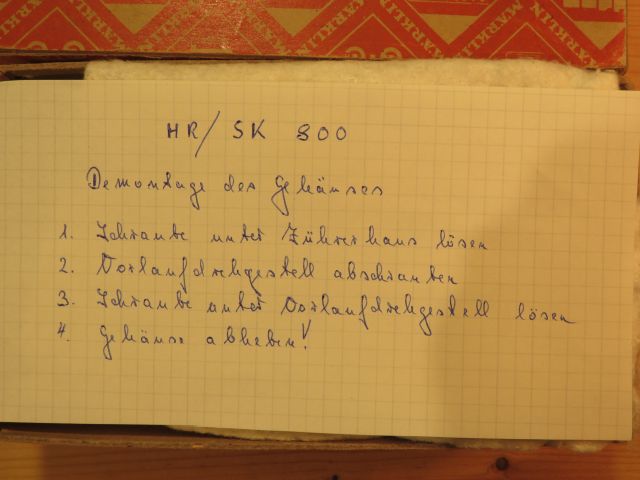 MÄRKLIN MÄRKLIN MÄRKLIN
HR/ SK 800
Demontage des Gehäuses
1. Schraube unter Führerhaus lösen
2. Vorlaufdrehgestell abschrauben
3. Schraube unter Vorlaufdrehgestell lösen
4. Gehäuse abheben!